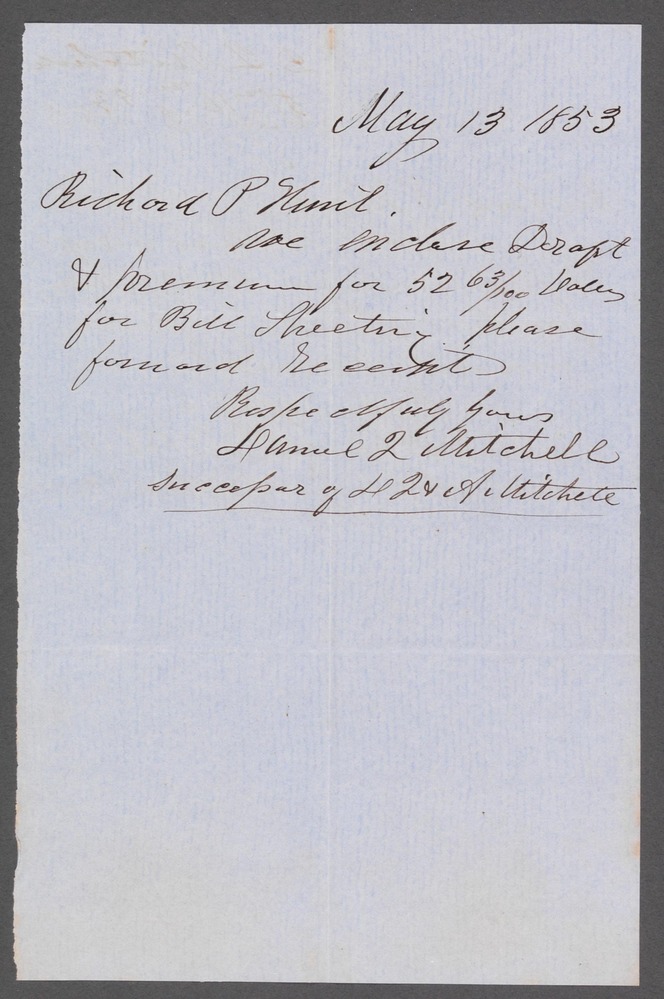 May 13 1853
Richard P Hunt
we inclose Draft
& premium for 52 63/100 Dollars
for Bill Sheeting please
forward Receipt
Respectfully yours
Daniel Q Mitchell
successor of D Q & A Mitchell